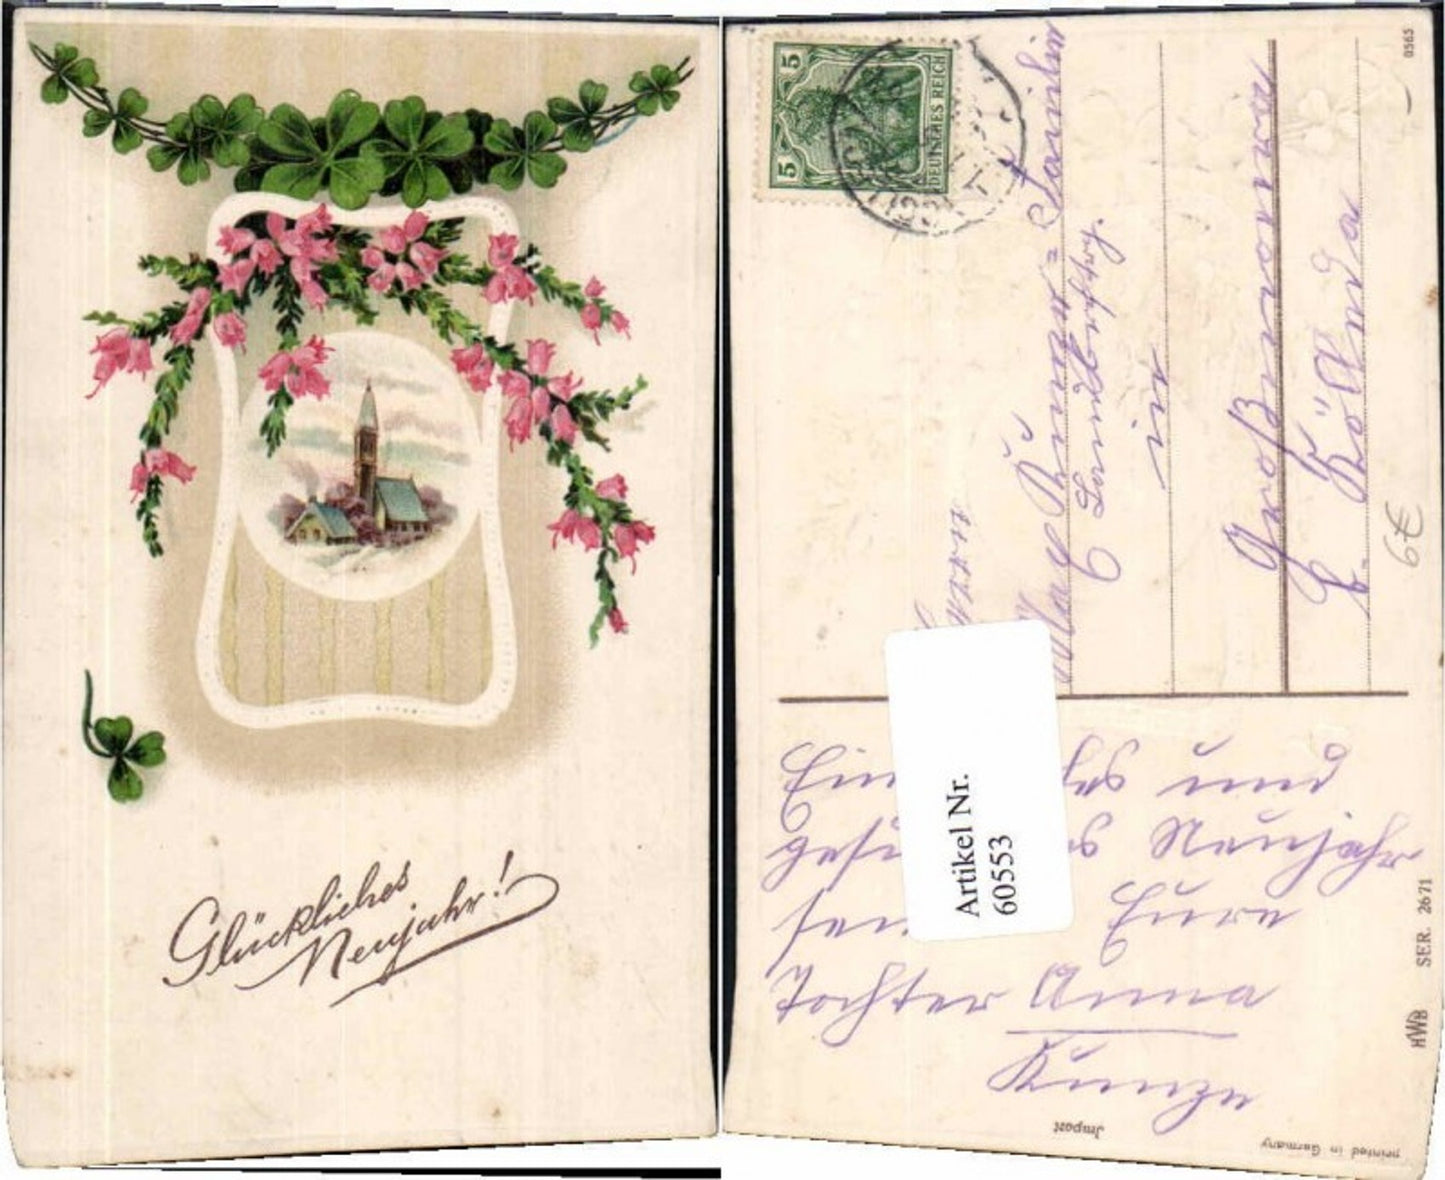 Glückliches
Neujahr!
5
5
DEUTSCHES REICH
0565
Herrn
Familie
Landbriefstrg.
in
Großenmonra
b. Kölleda
6€
Artikel Nr.
60553
und
Neujahr
Eure
Tochter Anna
Kunze
HWB SER. 2671
Import
printed in Germany